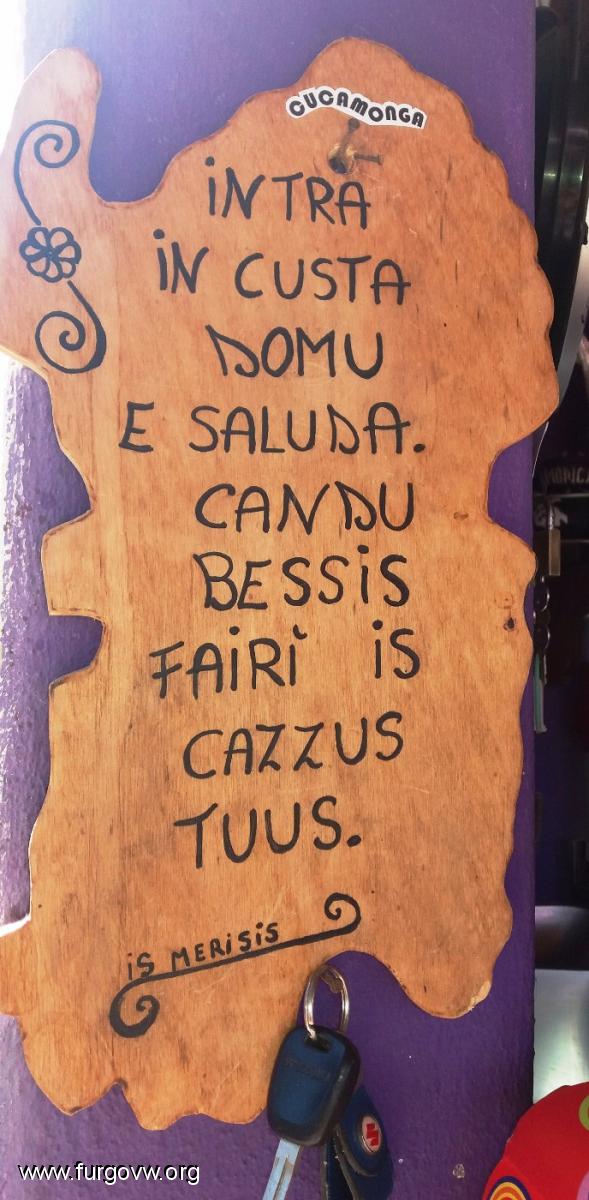 CUCAMONGA
iNTRA
iN CUSTA
DOMU
E SALUDA.
CANDU
BESSiS
FAiRì iS
CAZZUS
TUUS.
iS MERiSiS
www.furgovw.org